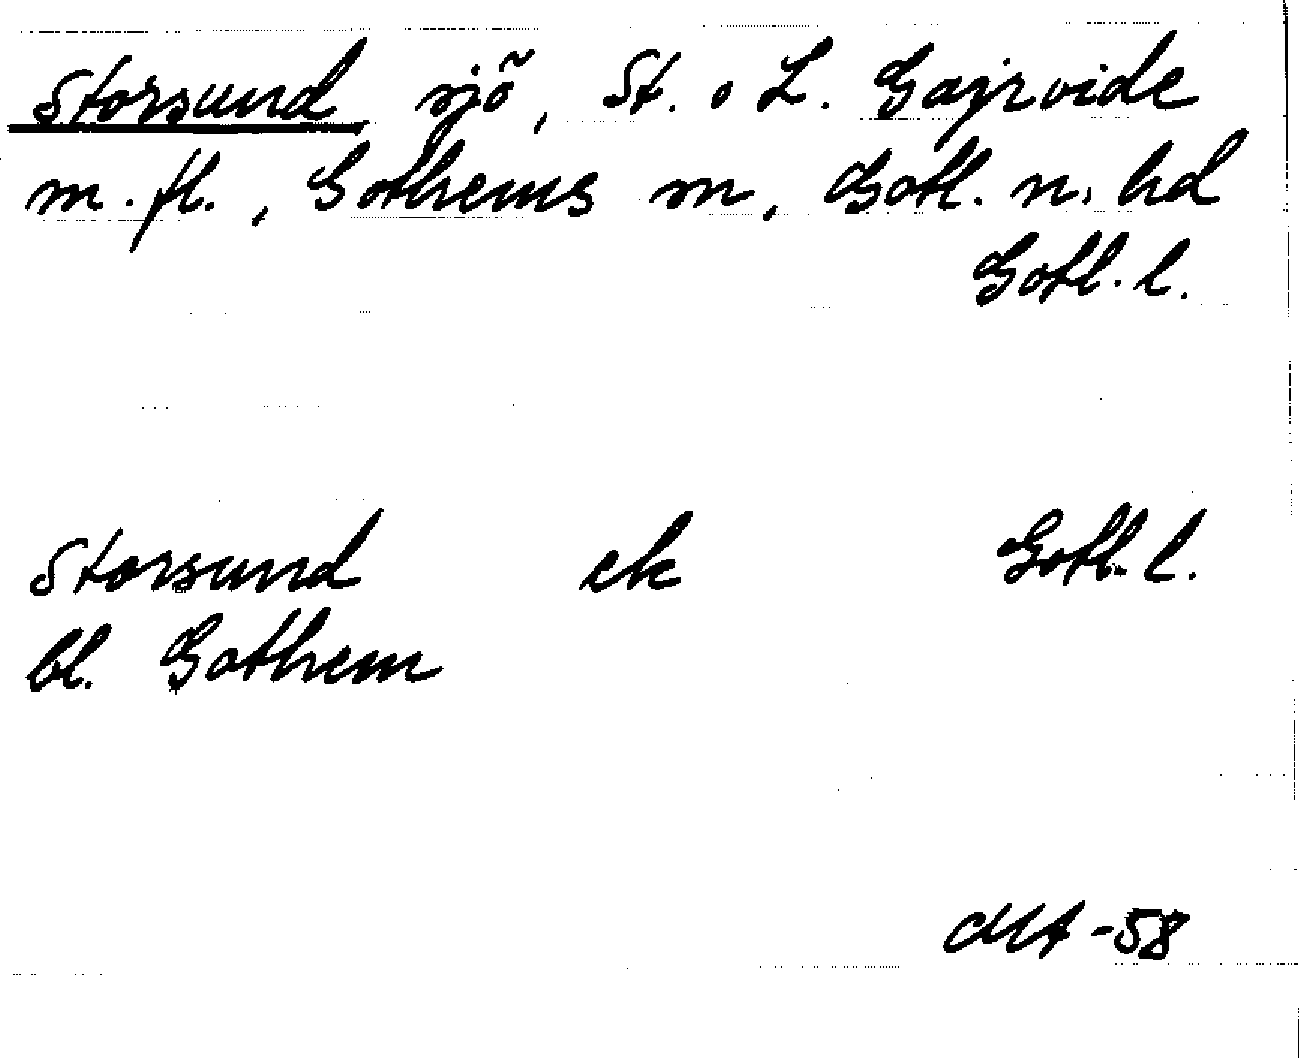 Storsund sjö, St. o L. Gajrvide
m. fl., Gothems sn, Gotl. n. hd
Gotl. l.
Storsund ek Gotl. l.
bl. Gothem
-58